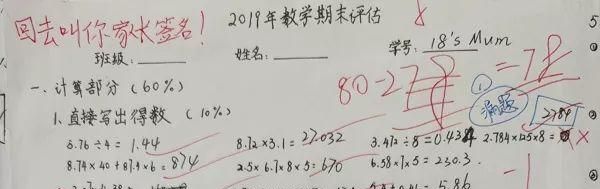 2019年数学期末评估
回去叫你家长签名！
班级：______ 姓名：______ 学号：18's Mum
80-2
=78
一、计算部分（60%）
漏题
2784
1. 直接写出得数（10%）
5.76÷4=1.44 8.72×3.1=27.032 3.472÷8=0.434 2.784×125×8=
8.74×40+87.4×6=874 2.5×6.7×8×5=670 6.58×7×5=230.3
-1
5.86
5
①
②
③